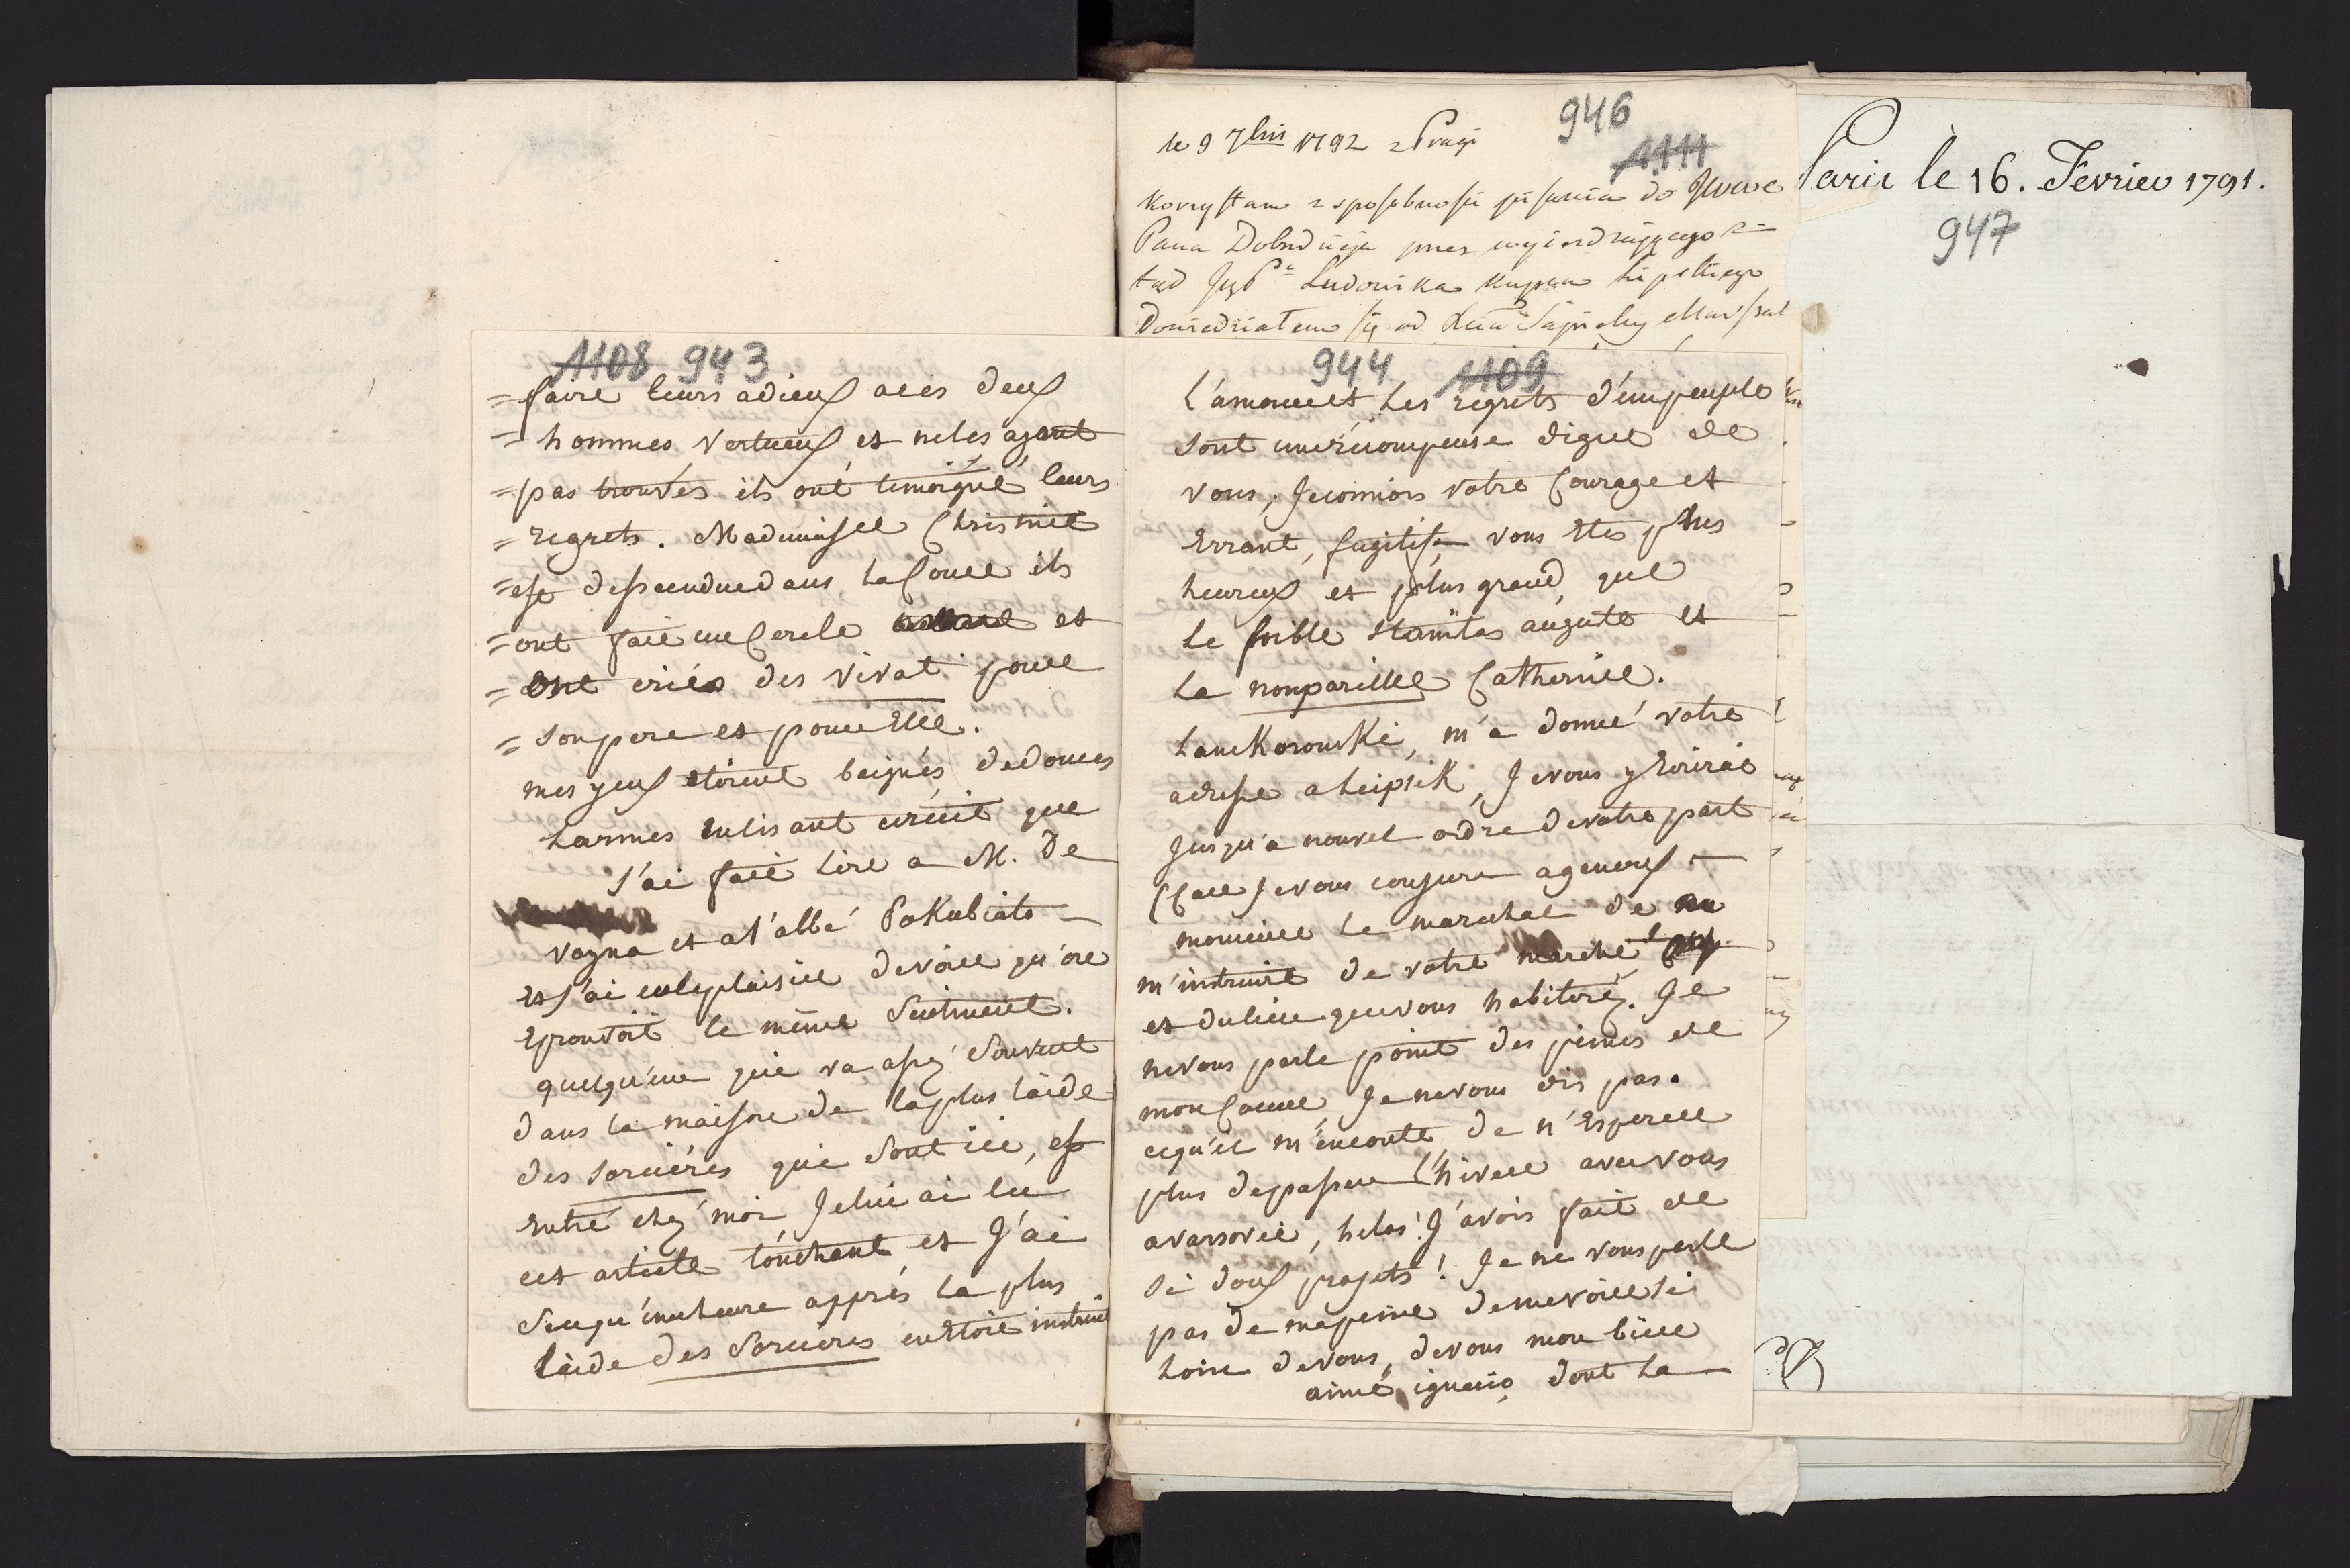 1108 943
= faire leurs adieux aces deux
= hommes vertueux et neles ayant
= pas trouvés ils ont temoigné leurs
= regrets. Mademoiselle Christine
= est dessendue dans la Cour ils
= ont fait un Cercle et
= ont criés des vivat pour
= son pere et pour Elle.
mes yeux etoient baignés dedouces
Larmes en lisant que
j'ai fait lire a M. De
vagna et a l'abbé
et j'ai eu le plaisir devoir qu'on
Eprouvoit le même Sentiment.
quelqu'un qui va assez Souvent
dans la maison de la plus laide
des Sorciéres qui Sont ici, est
entré chez moi Je lui ai lu
cet article touchant et J'ai
Scu qu'une heure apprès la plus
laide des Sorcieres en etoit instruite
944 1109
L'amour et Les regrets d'un peuple
sont une récompense digne de
vous, Je connois votre Courage et
Errant, fugitif, vous Etes plus
heureux et plus grand, que
Le foible Stanilas auguste et
La nonpareille Catherine.
Lanckoronski, m'a donné votre
adresse a Leipsik, Je vous y Ecrirai
Jusqu'a nouvel ordre de votre part
Je vous conjure a genoux
monsieur Le marechal de
m'instruire de votre marche
et du lieu que vous habiterez. Je
ne vous parle point des peines de
mon Coeur, Je ne vous dis pas
ce qu'il m'en coute de n'Esperer
plus de passer L'hiver avec vous
a varsovie, helas! J'avois fait de
si doux projets! Je ne vous parle
pas de ma peine de me voir si
Loin de vous, de vous mon bien
aimé ignacio dont La
946
1111
le 9 7bris 1792 z Pragi
Korzystam z sposobnosci pisania do JWWC
Pana Dobrodzieja przez wyiezdzaiącego z=
tąd Ludowika Kupca Lipskiego
Dowiedziałem się od Xcia Sapiehy Marszał
Paris le 16. Fevrier 1791.
947